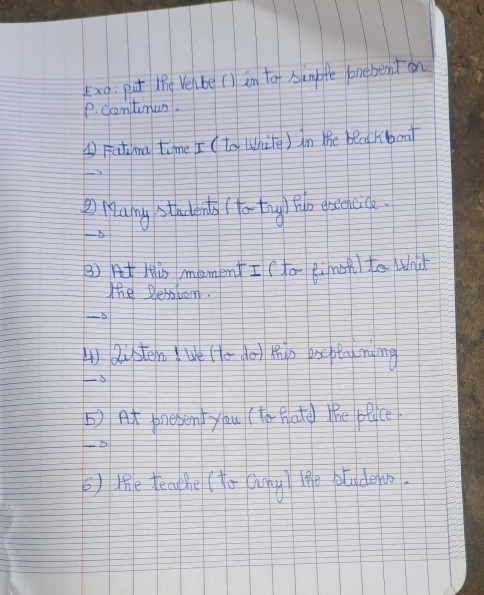 Exo: put the verbe () in to simple present or
P. continus.
1) Fatima time I (to write) in the blackboat
→
2) Many students (to try) his exercice.
→
3) At this mament I (to finish) to writ
the lession.
→
4) Listen! We (to do) this explaining
→
5) At present you (to hate) the plice.
→
6) the teache (to carry) the studens.